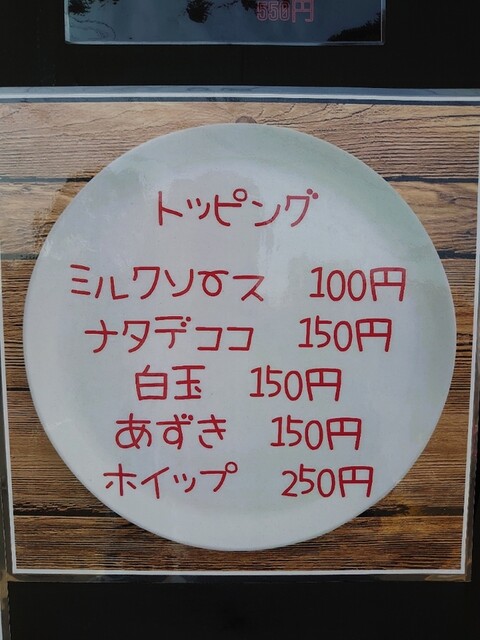 550円
トッピング
ミルクソース 100円
ナタデココ 150円
白玉 150円
あずき 150円
ホイップ 250円